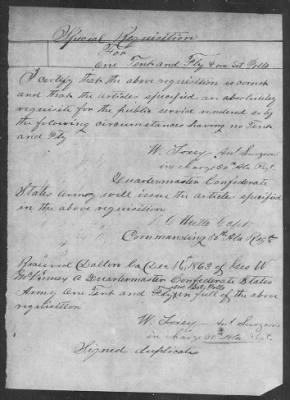 Special Requisition
For
One Tent and Fly & one Set Polls
I certify that the above requisition is correct
and that the articles specified are absolutely
requisite for the public service rendered so by
the following circumstances having no Tent
and Fly
W. Forey Ast Surgeon
in charge 30th Ala Regt
Quartermaster Confederate
States Army will issue the articles specified
in the above requisition
Capt
Commanding 30th Ala Regt
Received Dalton Ga Dec 16th 1863 of Geo W
a Quartermaster Confederate States
one Set Polls
Army one Tent and Fly in full of the above
requisition
W. Forey Ast Surgeon
in charge 30th Ala Regt
Signed duplicate